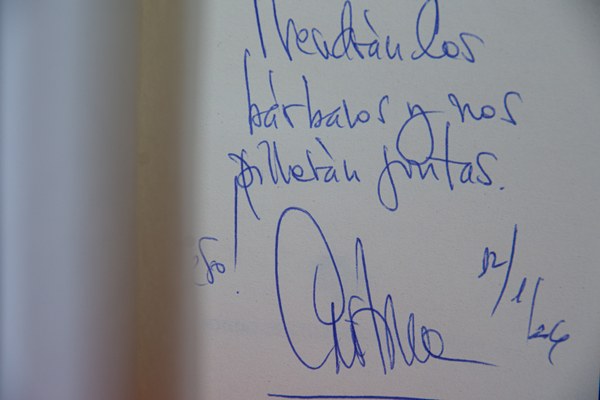 Vendrán los
bárbaros y nos
pillarán juntas.
12/1/24